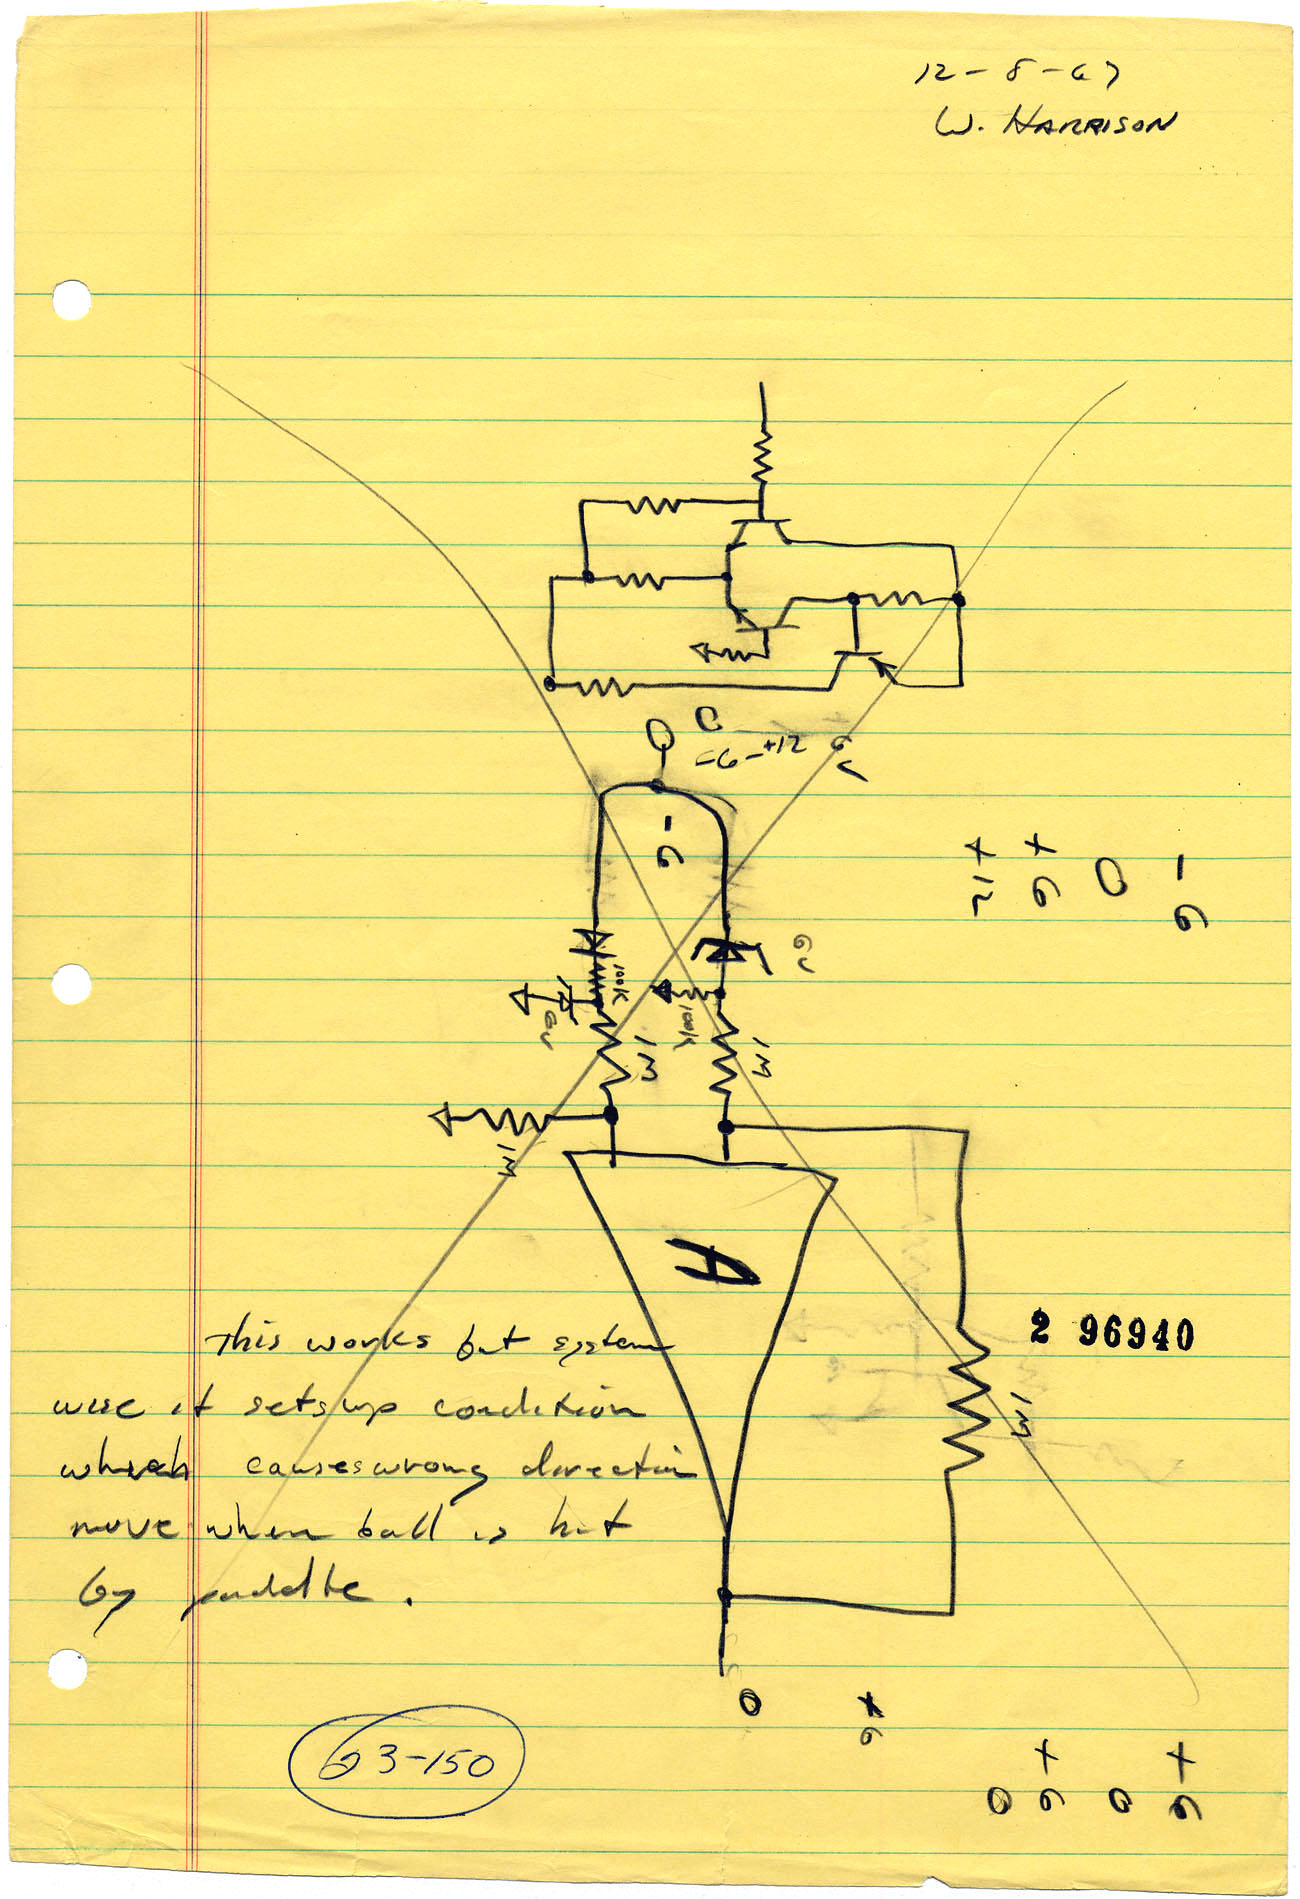 12-8-67
W. HARRISON
0
-6-+12
6v
-6
+12
+6
0
-6
100K
6v
6v
100K
1M
1M
1M
A
2 96940
1M
This works but system
wise it sets up condition
which causes wrong direction
move when ball is hit
by paddle.
0
+6
0
+6
0
+6
63-150